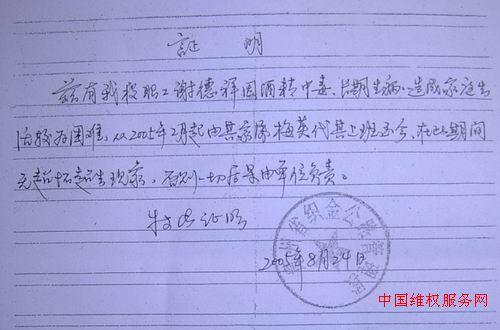 証明
兹有我段职工谢德祥因酒精中毒、长期生病、造成家庭生
活较为困难、从2005年2月起由其家属梅英代其上班至今、在此期间
无超怀超生现象，否则一切后果由单位负责。
特此证明
2005年8月24日
贵州省织金公路管理段
中国维权服务网